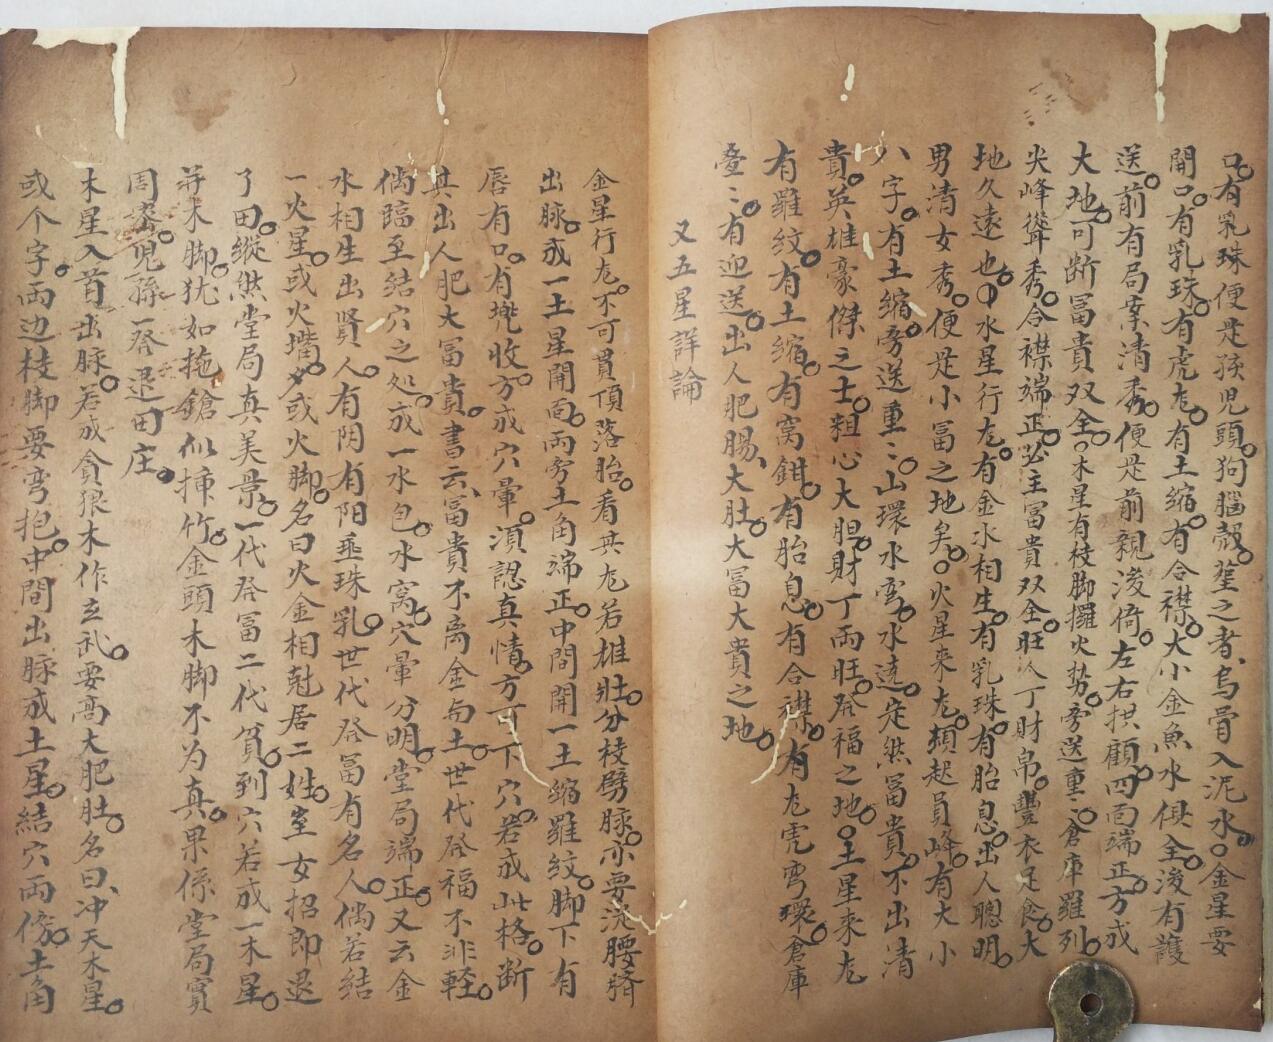 只。有乳珠便是孩児頭。狗腦殼。葬之者、烏骨入泥水。○金星要
開口。有乳珠。有虎尨。有土縮。有合襟。大小金魚水俱全。後有護
送。前有局案清秀。便是前親後倚。左右拱顧。四面端正。方成
大地。可断冨貴双全。○木星有枝脚擺火势。旁送重〻。倉庫羅列。
尖峰聳秀。合襟端正。必主冨貴双全。旺人丁財帛。豐衣足食。大
地久遠也。○水星行尨。有金水相生。有乳珠。有胎息。出人聰明。
男清女秀。便是小冨之地矣。○火星来尨。頻起員峰。有大小
八字。有土縮。旁送重〻。山環水弯。水遶。定然冨貴。不出清
貴。英雄豪傑之士。粗心大胆。財丁両旺。発福之地。○土星来尨
有羅紋。有土縮。有窩鉗。有胎息。有合襟。有尨虎弯環。倉庫
叠〻。有迎送。出人肥腸、大肚。大冨大貴之地。
又五星詳論
金星行尨。不可貫頂落胎。看其尨若雄壯。分枝劈脉。亦要決腰躋
出脉。成一土星開面。両旁土角端正。中間開一土縮羅紋。脚下有
唇有口。有兠收。方成穴暈。湏認真情。方可下穴。若成此格。断
其出人肥大冨貴。書云、冨貴不离金与土。世代発福不非軽。
倘臨至結穴之処。成一水泡。水窩。穴暈分明。堂局端正。又云金
水相生出賢人。有阴有阳垂珠乳。世代発冨有名人。倘若結
一火星。或火嘴。多或火脚。名曰火金相尅居二姓。室女招郎退
了田。縱然堂局真美景。一代発冨二代貧。到穴若成一木星。
并木脚。犹如拖鎗似挿竹。金頭木脚不为真。果係堂局實
周密。児孫一発退田庄。
木星入首出脉。若成貪狼木作玄武。要高大肥肚。名曰、冲天木星。
或个字。両边枝脚要弯抱。中間出脉成土星。結穴両傍。土角